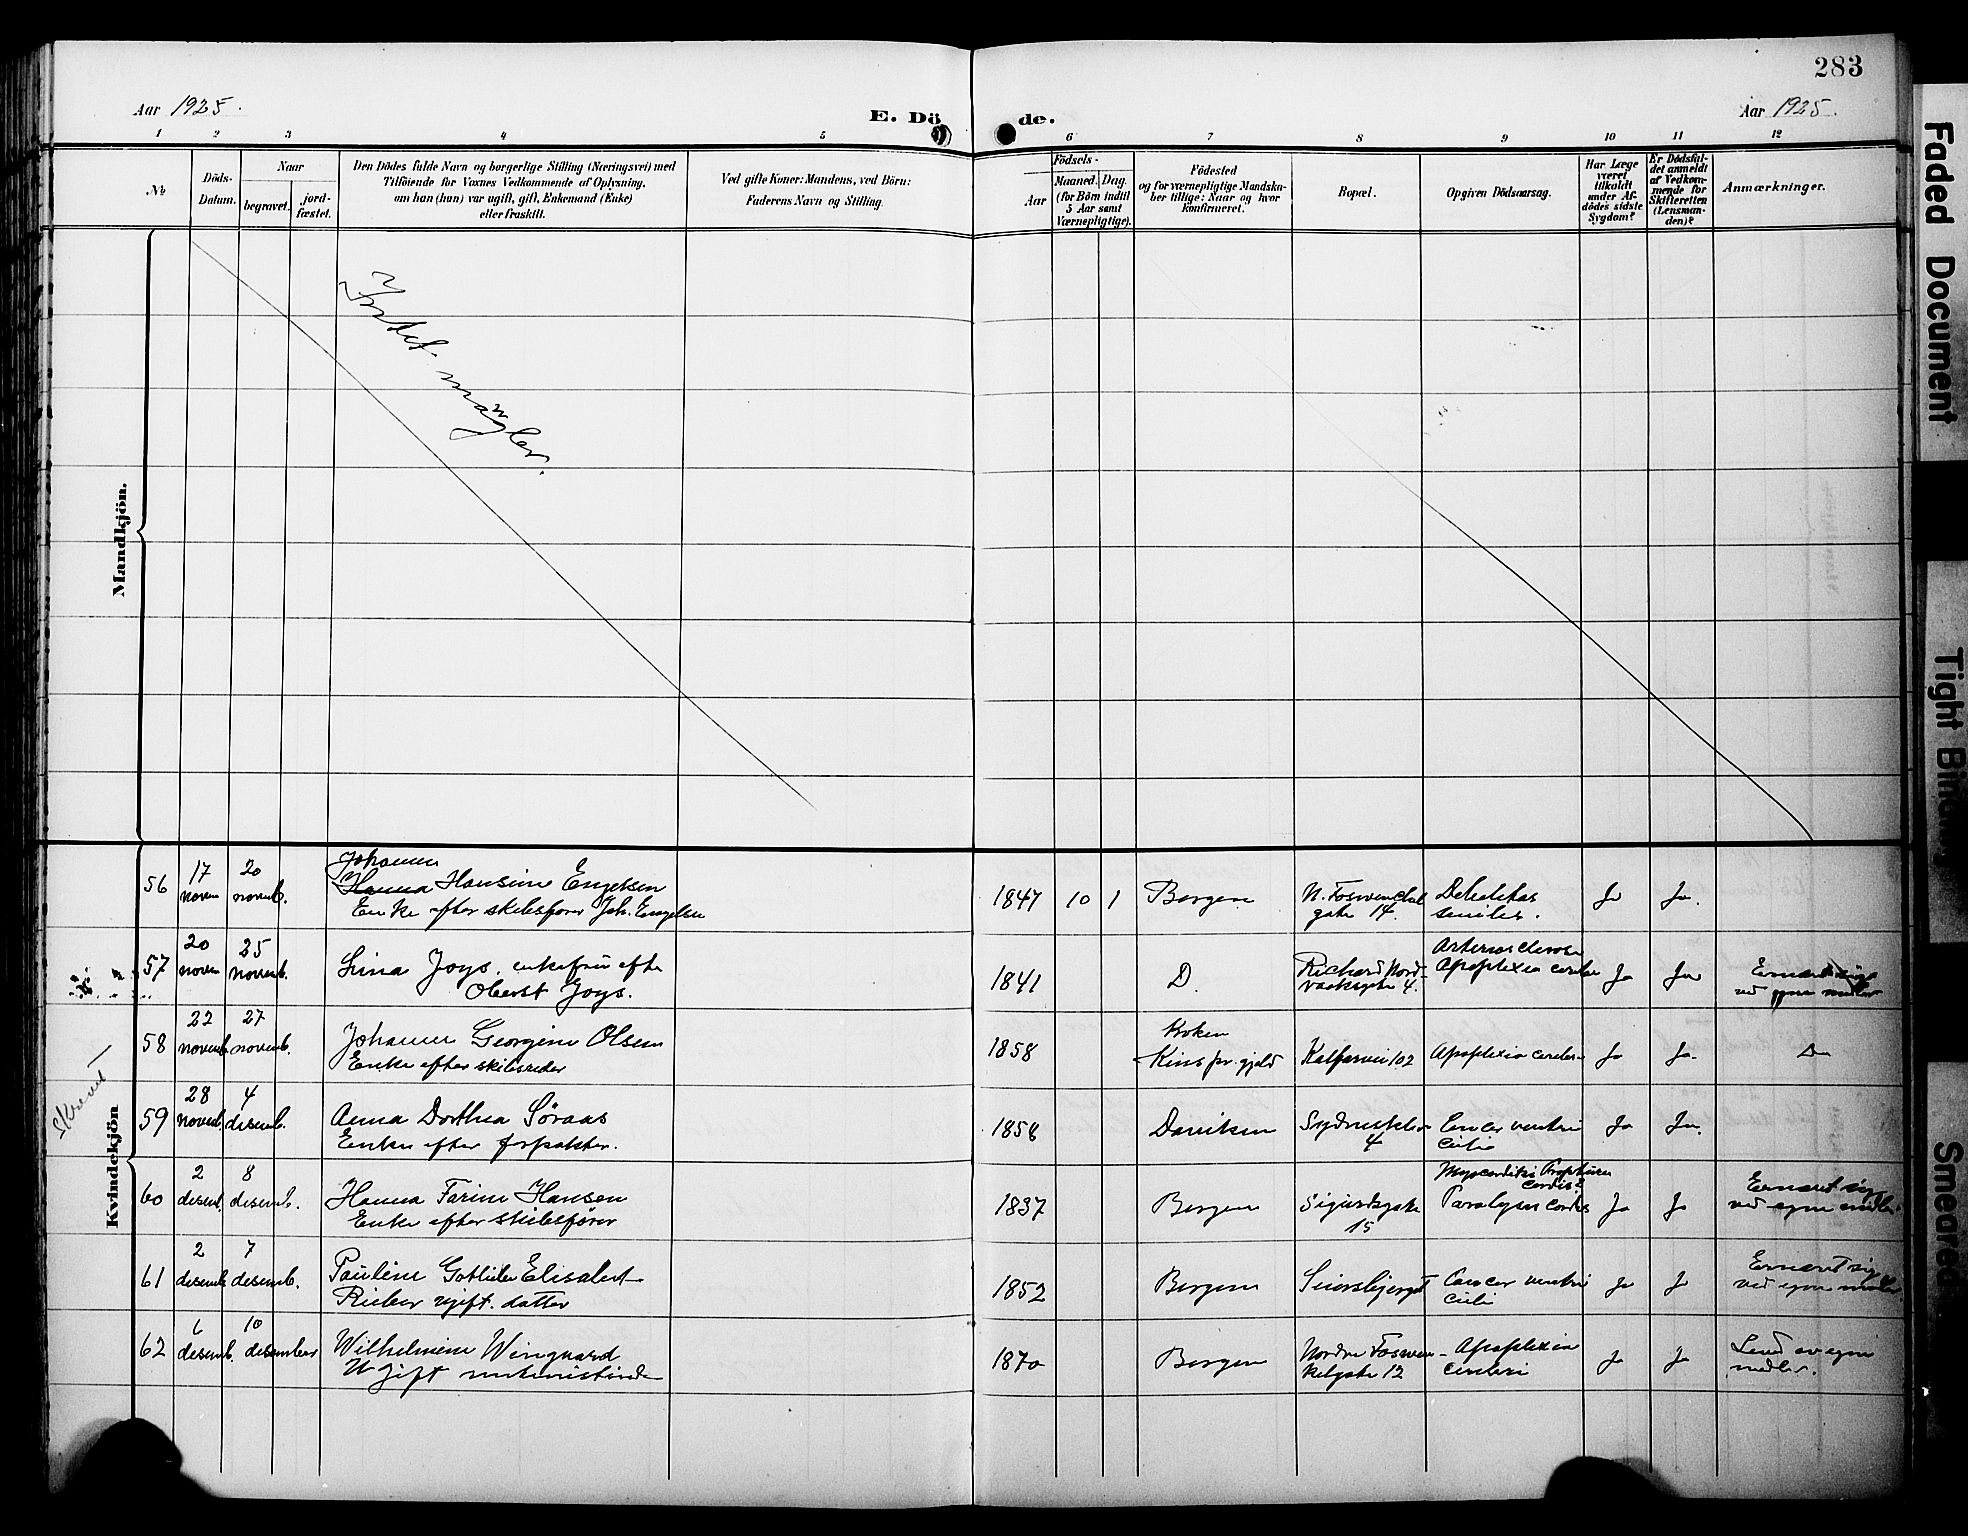 283
Aar 1925.
E. Döde.
Aar 1925.
1 2 3 4 5 6 7 8 9 10 11 12
No
Döds-
Datum.
Naar
begravet.
jord-
fæstet.
Den Dödes fulde Navn og borgerlige Stilling (Næringsvei) med
Tilföiende for Voxnes Vedkommende af Oplysning,
om han (hun) var ugift, gift, Enkemand (Enke)
eller fraskilt.
Ved gifte Koner: Mandens, ved Börn:
Faderens Navn og Stilling.
Födsels-
Aar
Maaned. Dag.
(for Börn indtil
5 Aar samt
Værnepligtige).
Födested
og for værnepligtige Mandska-
ber tillige: Naar og hvor
konfirmeret.
Bopæl.
Opgiven Dödsaarsag.
Har Læge
været
tilkaldt
under Af-
dödes sidste
Sygdom?
Er Dödsfal-
det anmeldt
af Vedkom-
mende for
Skifteretten
(Lensman-
den)?
Anmærkninger.
Mandkjön.
Intet mangler.
Kvindekjön
56
17
novem
20
novemb.
Johanne
Hanna Hansine Engelsen
Enke efter skibsfører Joh. Engelsen
1847 10 1
Bergen
gate 14.
seniles.
Ja
Ja.
57
20
novem
25
novemb.
Lina Joys. enkefru efter
Oberst Joys.
1841
D.
Richard Nord-
4.
Apoplexia cerebri
Ja
Ja
ved egne midler
58
22
novemb.
27
novemb.
Johanne Georgine Olsen
Enke efter skibsreder
1858
Kins pr.gjeld
Kalfarvei 102
Apoplexia cerebri
Ja
Ja.
Do
59
28
novemb.
4
desemb.
Anna Dorthea Søraas
Enke efter forpakter.
1858
Daviken
4
Cancer ventri
culi
Ja
Ja.
60
2
desemb.
8
desemb.
Hanna Farine Hansen
Enke efter skibsfører
1837
Bergen
Sigurdsgate
15
Paralysis cordis
Ja
Ja
Ernæret sig
ved egne midler.
61
2
desemb.
7
desemb.
Pauline Gotliebe Elisabet
Rieber ugift. datter
1852
Bergen
Cancer ventri
culi
Ja
Ja
Ernæret sig
ved egne midler.
62
6
desemb.
10
desember
Wilhelmine Wingaard
Ugift
1870
Bergen
Nordre Foswin-
kelgate 12
Apoplexia
cerebri
Ja
Ja
Levd av egne
midler.
Faded Document
Tight Bin
Smeared